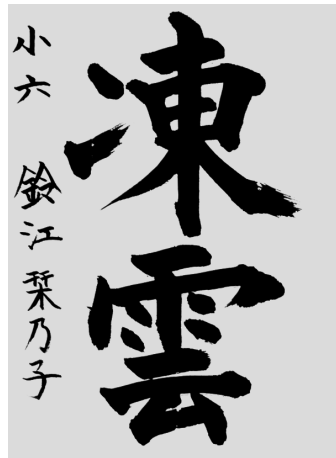 凍雲
小六 鈴江栞乃子